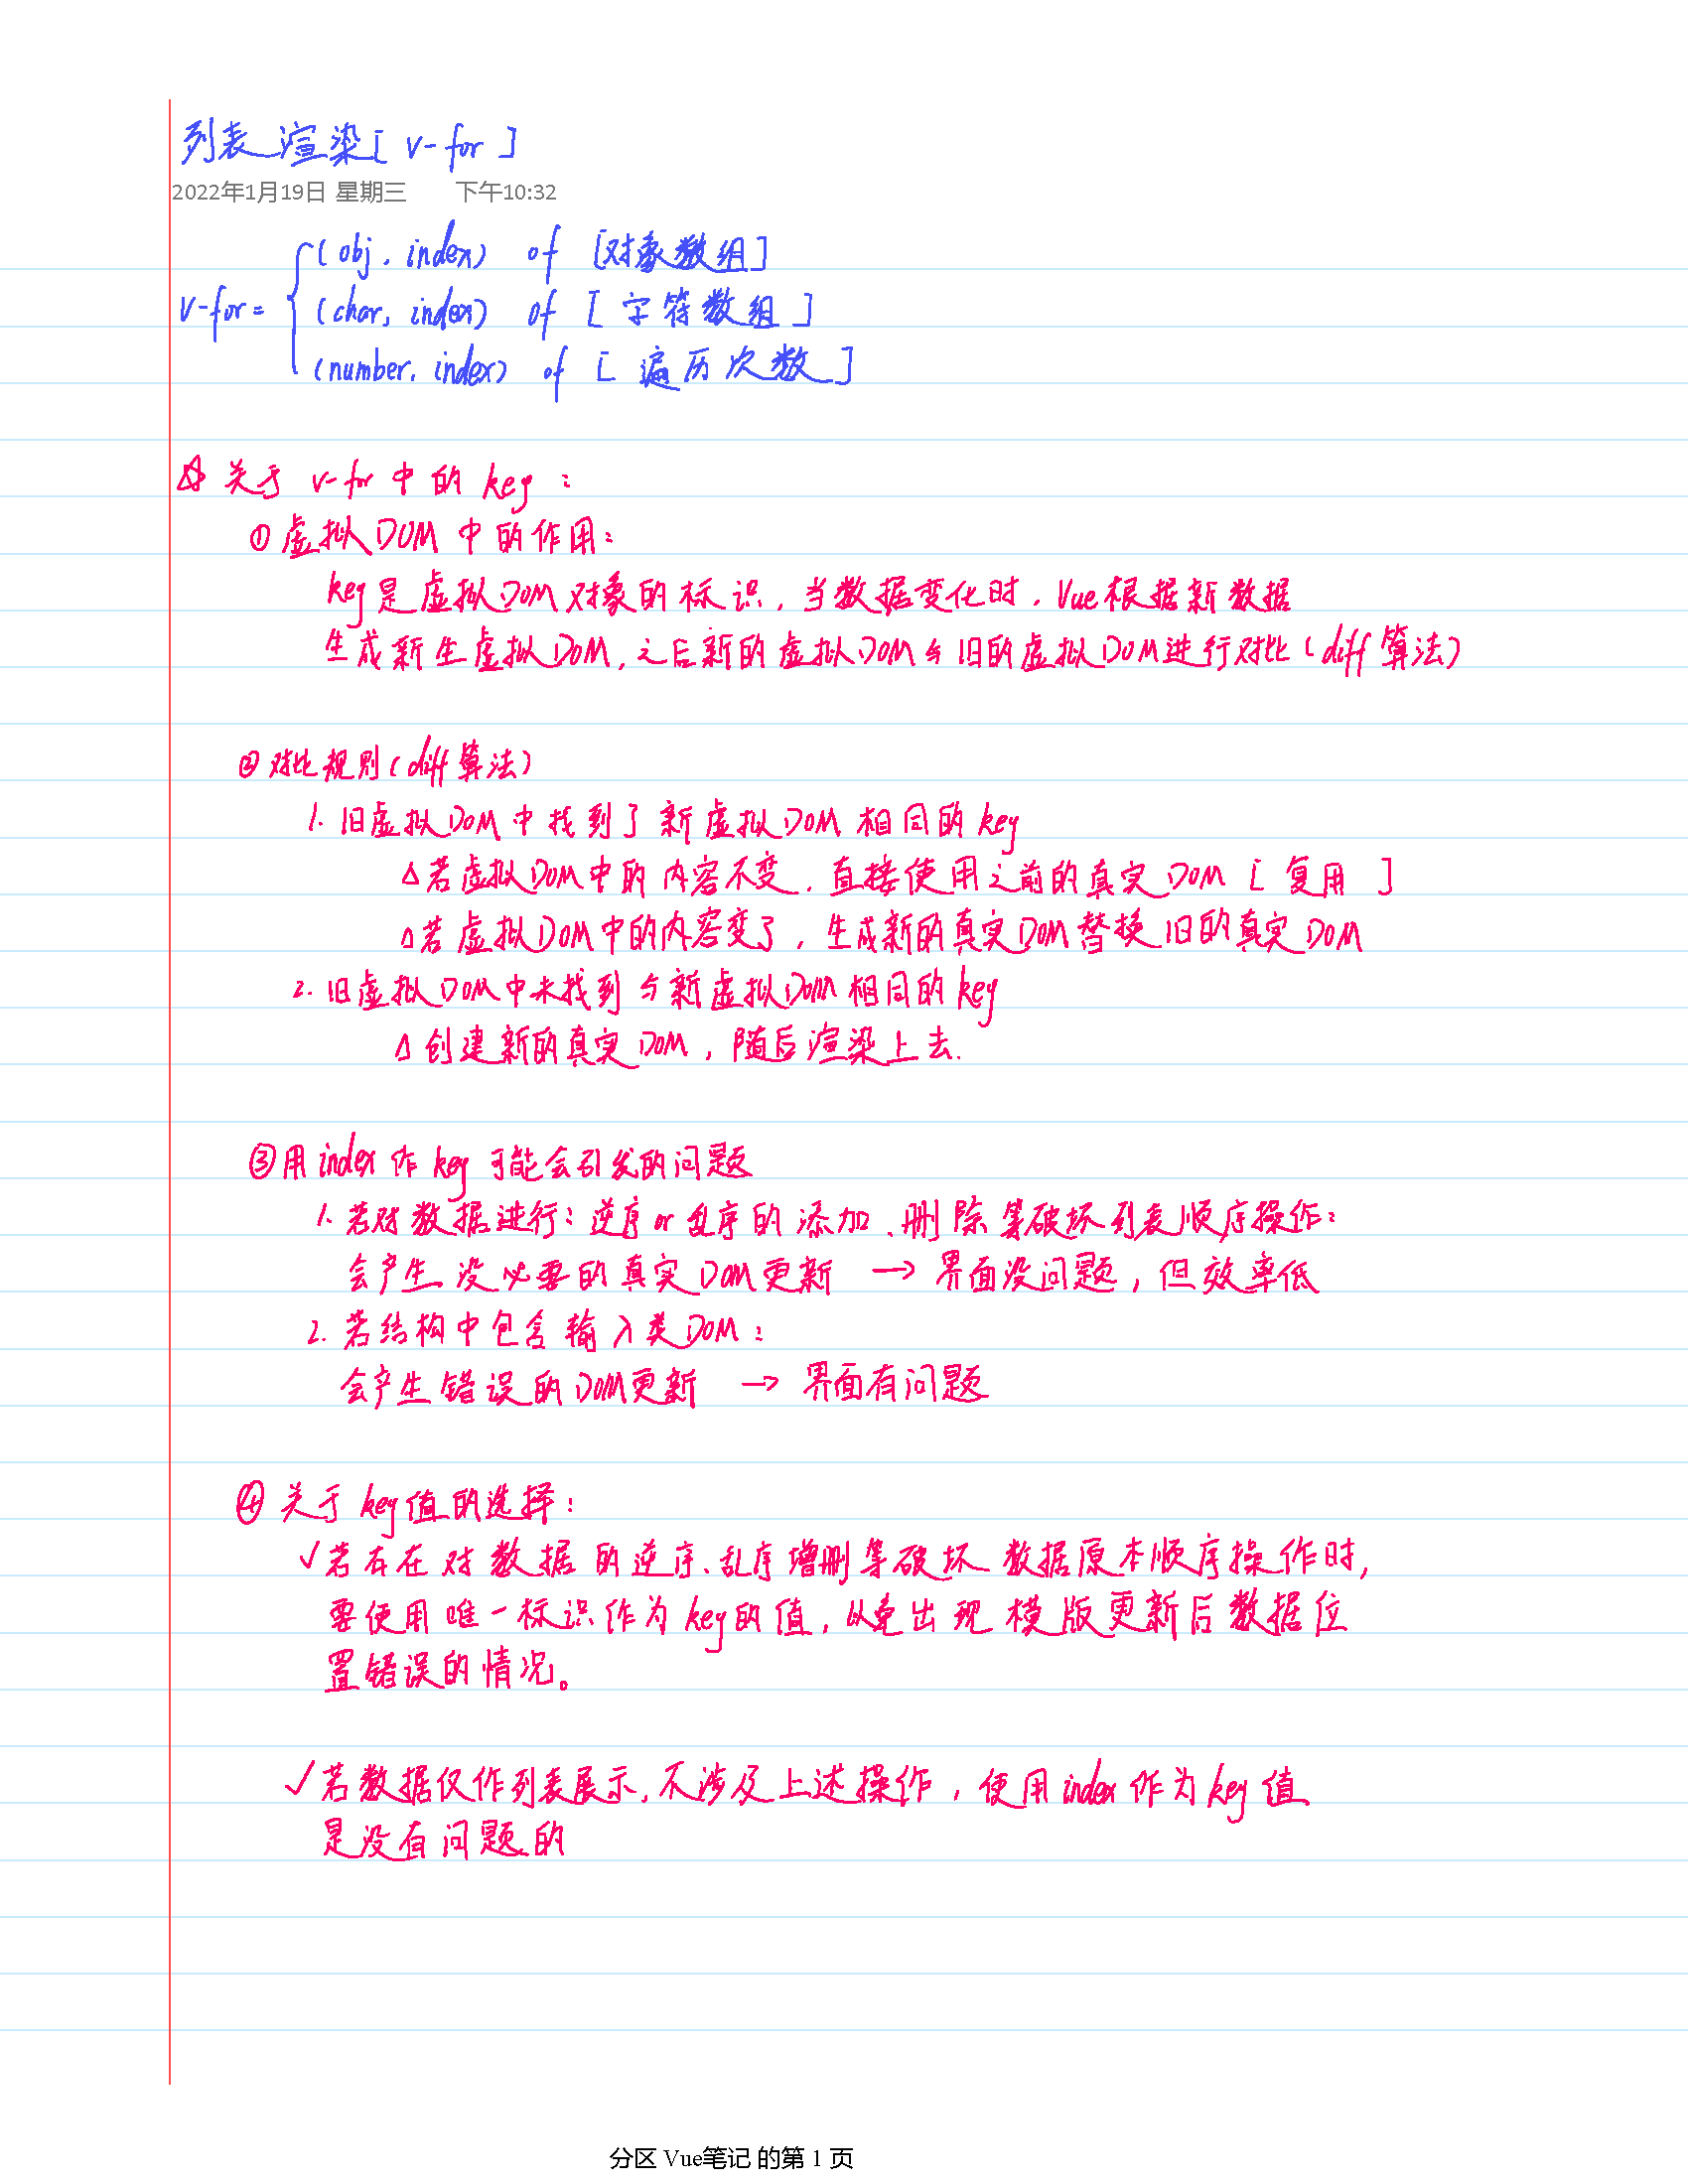 列表渲染[ v-for ]
2022年1月19日 星期三 下午10:32
(obj, index) of [对象数组]
v-for= (char, index) of [ 字符数组 ]
(number, index) of [ 遍历次数 ]
☆ 关于 v-for 中的 key :
① 虚拟DOM 中的作用:
key是虚拟DOM对象的标识, 当数据变化时, Vue根据新数据
生成新生虚拟DOM, 之后新的虚拟DOM与旧的虚拟DOM进行对比(diff算法)
② 对比规则(diff算法)
1. 旧虚拟DOM中找到了新虚拟DOM相同的key
△若虚拟DOM中的内容不变, 直接使用之前的真实DOM [ 复用 ]
△若虚拟DOM中的内容变了, 生成新的真实DOM替换旧的真实DOM
2. 旧虚拟DOM中未找到与新虚拟DOM相同的key
△ 创建新的真实DOM, 随后渲染上去.
③用index作key可能会引发的问题
1. 若对数据进行: 逆序or乱序的添加、删除等破坏列表顺序操作:
会产生没必要的真实DOM更新 → 界面没问题, 但效率低
2. 若结构中包含输入类DOM:
会产生错误的DOM更新 → 界面有问题
④ 关于key值的选择:
✓若存在对数据的逆序、乱序增删等破坏数据原本顺序操作时,
要使用唯一标识作为key的值, 以免出现模版更新后数据位
置错误的情况。
✓若数据仅作列表展示, 不涉及上述操作, 使用index作为key值
是没有问题的
分区 Vue笔记 的第 1 页